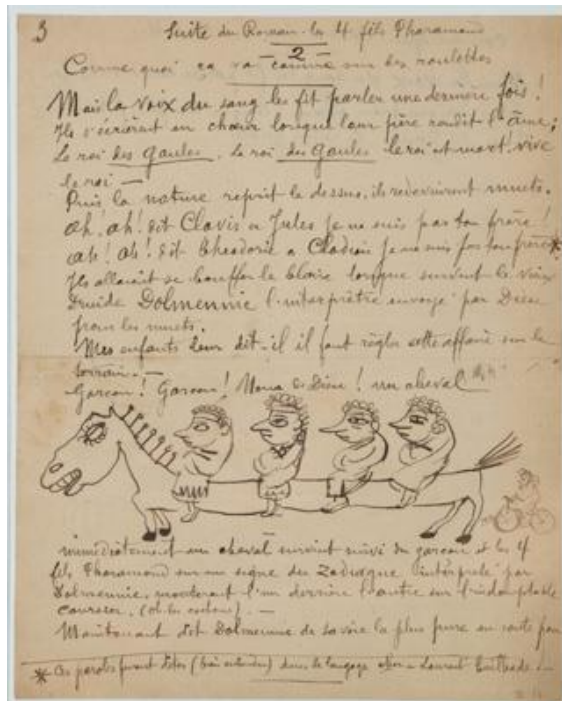 3 Suite du Roman les 4 fils Pharamond
2
Comme quoi ça va comme sur des roulettes
Mais la voix du sang les fit parler une dernière fois !
Ils s'écrièrent en chœur lorsque leur père rendit l'âme ;
Le roi des Gaules, le roi des Gaules le roi est mort ! vive
le roi —
Puis la nature reprit le dessus, ils redevinrent muets.
Ah ! ah ! dit Clovis à Jules je ne suis pas ton frère !
Ah ! Ah ! dit Theodoric a Clodion je ne suis pas ton frère *
Ils allaient se bouffer le blaire lorsque survint le vieux
Druide Dolmennie l'interprète envoyé par Dieu
pour les muets.
Mes enfants leur dit-il il faut régler cette affaire sur le
terrain. —
Garçon ! Garçon ! Nom de Dieu ! un cheval
immédiatement un cheval survint suivi du garçon et les 4
fils Pharamond sur un signe du Zodiaque interprété par
Dolmennie, montèrent l'un derrière l'autre sur l'indomptable
coursier. —
Maintenant dit Dolmennie de la plus pure en route pour
* Ces paroles furent dites (bien entendu) dans le langage cher a Laurent Tailhade —